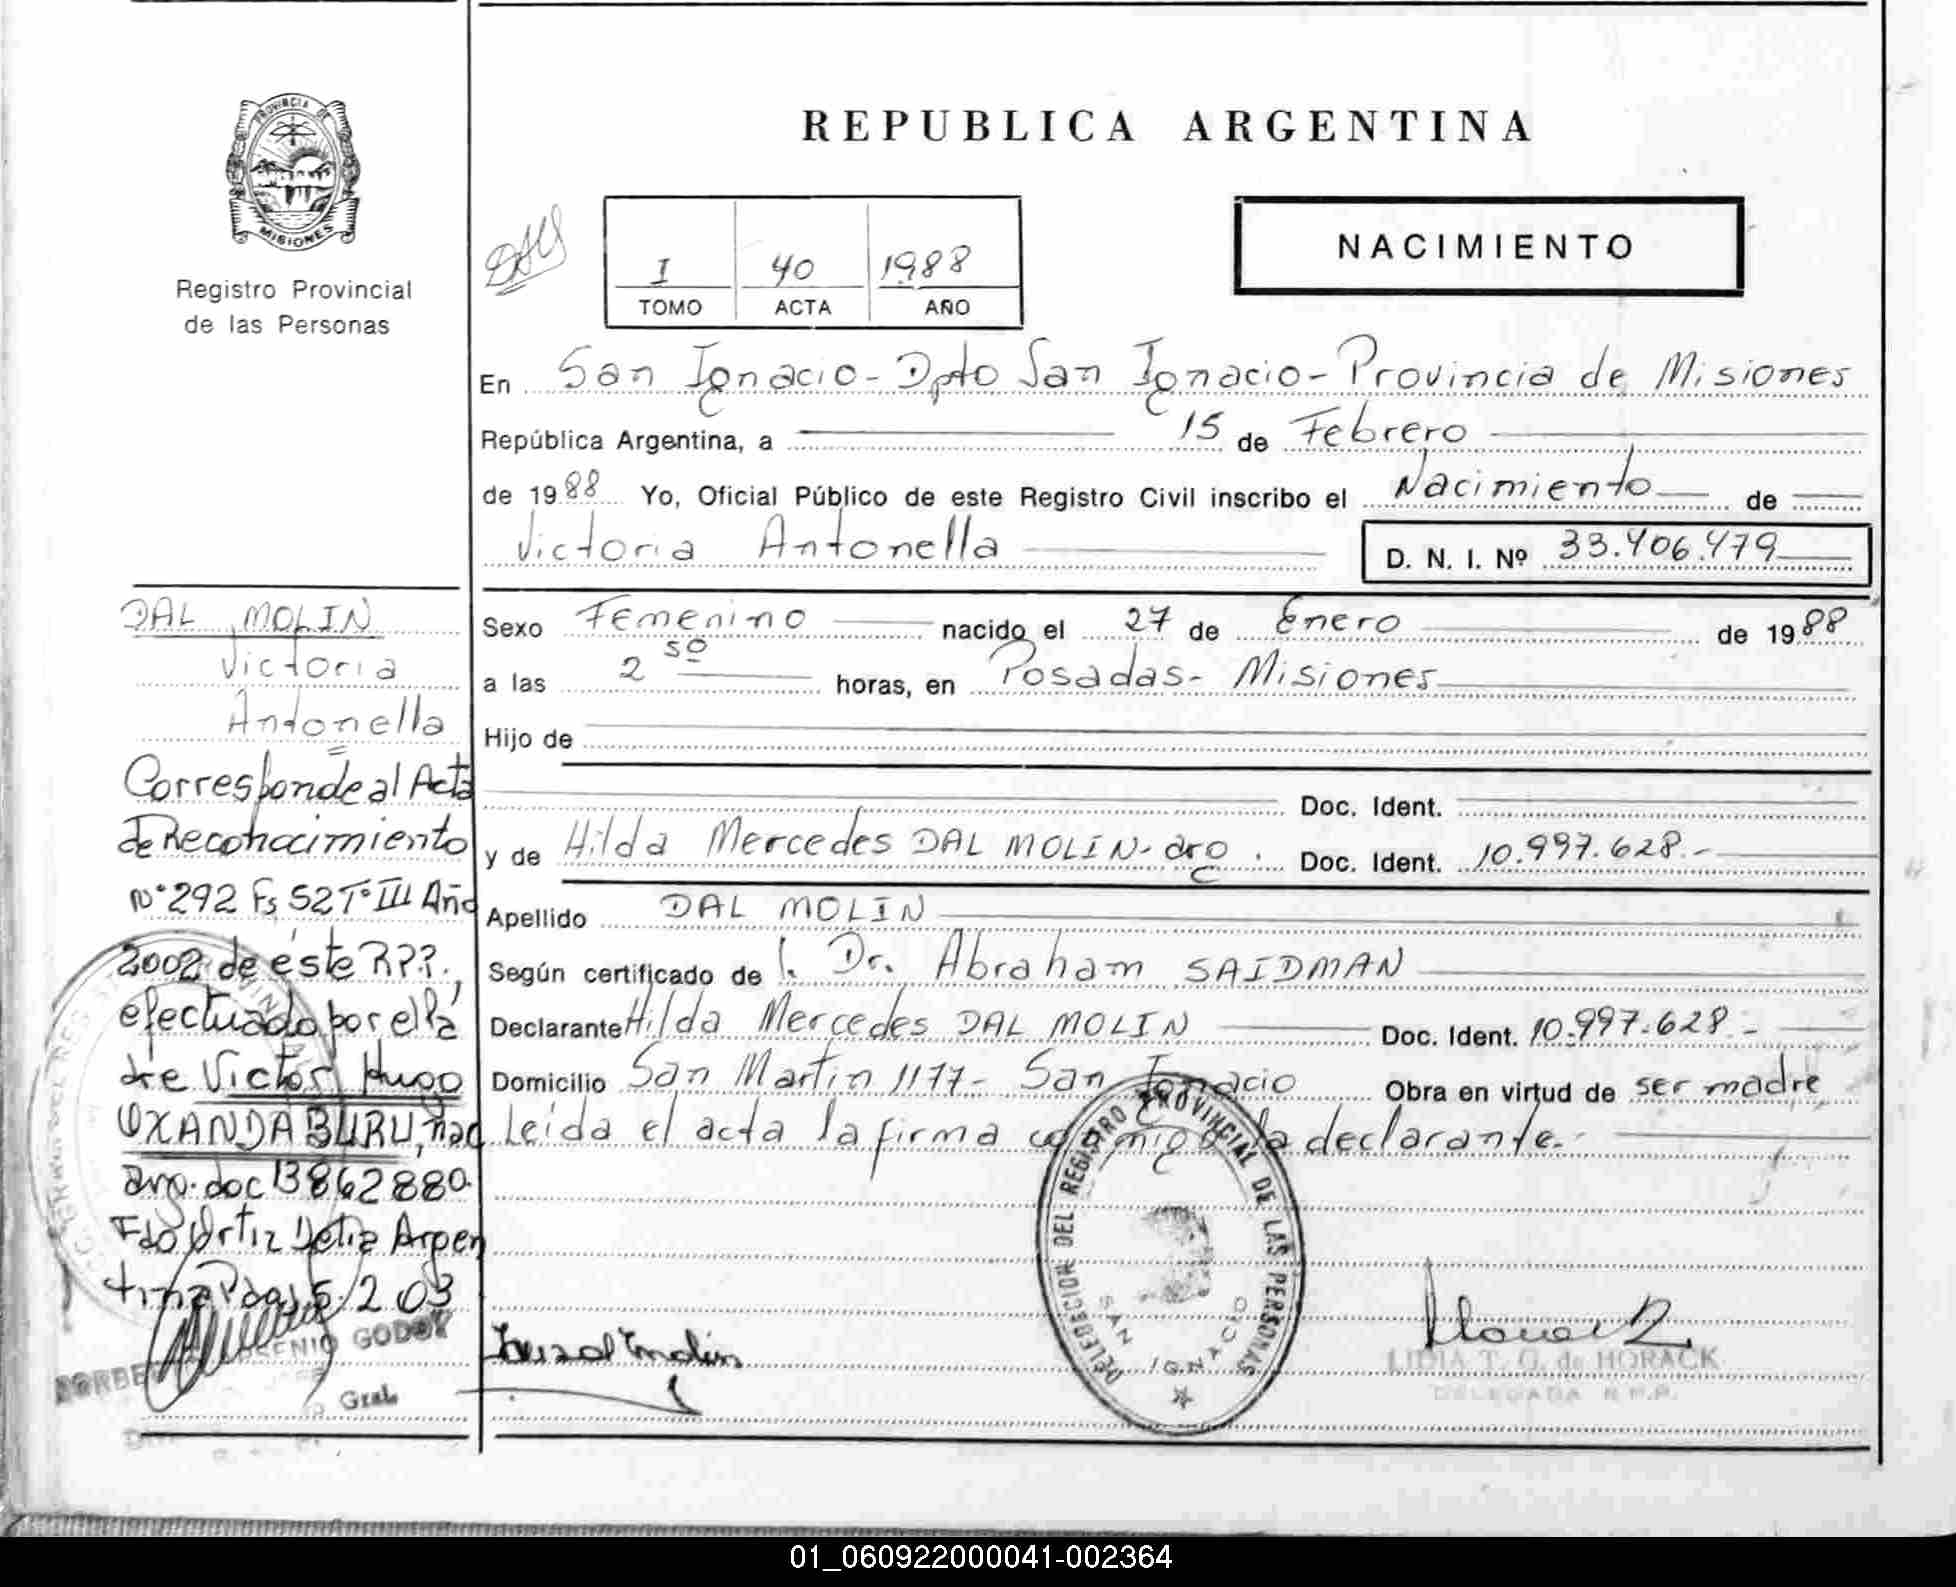 PROVINCIA DE
MISIONES
Registro Provincial
de las Personas
REPUBLICA ARGENTINA
I 40 1988
TOMO ACTA AÑO
NACIMIENTO
En San Ignacio - Dpto San Ignacio - Provincia de Misiones
República Argentina, a 15 de Febrero
de 1988 Yo, Oficial Público de este Registro Civil inscribo el Nacimiento de
Victoria Antonella D. N. I. Nº 33.406.479
Sexo Femenino nacido el 27 de Enero de 1988
a las 2 50 horas, en Posadas - Misiones
Hijo de
Doc. Ident.
y de Hilda Mercedes DAL MOLIN - arg. Doc. Ident. 10.997.628.-
Apellido DAL MOLIN
Según certificado de l. Dr. Abraham SAIDMAN
Declarante Hilda Mercedes DAL MOLIN Doc. Ident. 10.997.628.-
Domicilio San Martin 1177 - San Ignacio Obra en virtud de ser madre
Leida el acta la firma conmigo la declarante.-
DAL MOLIN
Victoria
Antonella
Corresponde al Acta
de Reconocimiento
N° 292 Fs 52 T° III Año
2002 de éste R.P.P.,
efectuado por el Pa
dre Victor Hugo
OXANDABURU, nac
arg. doc 13862880.
Fdo Ortiz Delia Argen
tina Pdas 5 2 03
GODOY
Gral.
DELEGECION DEL REGISTRO PROVINCIAL DE LAS PERSONAS
SAN IGNACIO
LIDIA T. G. de HORACK
DELEGADA R.P.P.
01_060922000041-002364